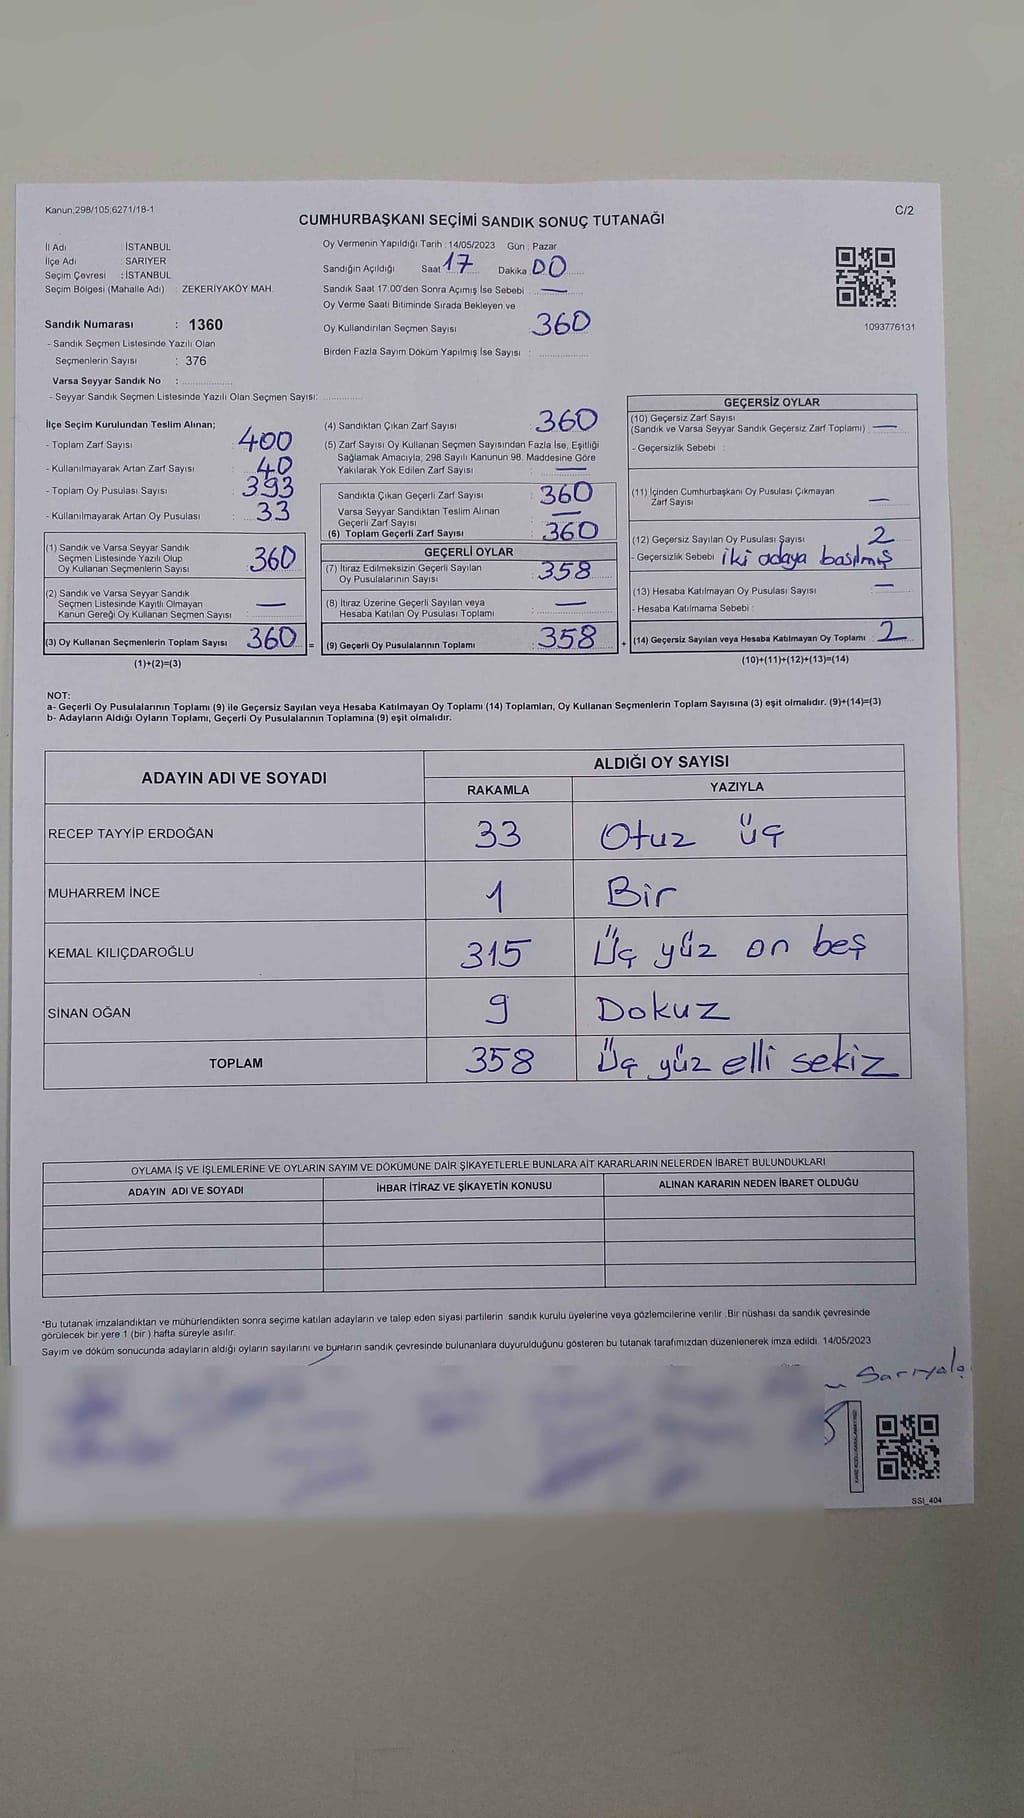 Kanun;298/105;6271/18-1
C/2
CUMHURBAŞKANI SEÇİMİ SANDIK SONUÇ TUTANAĞI
İl Adı : İSTANBUL
İlçe Adı : SARIYER
Seçim Çevresi : İSTANBUL
Seçim Bölgesi (Mahalle Adı) : ZEKERİYAKÖY MAH.
Sandık Numarası : 1360
- Sandık Seçmen Listesinde Yazılı Olan
Seçmenlerin Sayısı : 376
Varsa Seyyar Sandık No :
- Seyyar Sandık Seçmen Listesinde Yazılı Olan Seçmen Sayısı:
Oy Vermenin Yapıldığı Tarih : 14/05/2023 Gün : Pazar
Sandığın Açıldığı Saat 17 Dakika : 00
Sandık Saat 17:00'den Sonra Açımış İse Sebebi : —
Oy Verme Saati Bitiminde Sırada Bekleyen ve
Oy Kullandırılan Seçmen Sayısı : 360
Birden Fazla Sayım Döküm Yapılmış İse Sayısı :
1093776131
İlçe Seçim Kurulundan Teslim Alınan;
- Toplam Zarf Sayısı : 400
- Kullanılmayarak Artan Zarf Sayısı : 40
- Toplam Oy Pusulası Sayısı : 393
- Kullanılmayarak Artan Oy Pusulası : 33
(1) Sandık ve Varsa Seyyar Sandık
Seçmen Listesinde Yazılı Olup
Oy Kullanan Seçmenlerin Sayısı 360
(2) Sandık ve Varsa Seyyar Sandık
Seçmen Listesinde Kayıtlı Olmayan
Kanun Gereği Oy Kullanan Seçmen Sayısı : —
(3) Oy Kullanan Seçmenlerin Toplam Sayısı 360 =
(1)+(2)=(3)
(4) Sandıktan Çıkan Zarf Sayısı : 360
(5) Zarf Sayısı Oy Kullanan Seçmen Sayısından Fazla İse, Eşitliği
Sağlamak Amacıyla; 298 Sayılı Kanunun 98. Maddesine Göre
Yakılarak Yok Edilen Zarf Sayısı : —
Sandıkta Çıkan Geçerli Zarf Sayısı : 360
Varsa Seyyar Sandıktan Teslim Alınan
Geçerli Zarf Sayısı : —
(6) Toplam Geçerli Zarf Sayısı : 360
GEÇERLİ OYLAR
(7) İtiraz Edilmeksizin Geçerli Sayılan
Oy Pusulalarının Sayısı : 358
(8) İtiraz Üzerine Geçerli Sayılan veya
Hesaba Katılan Oy Pusulası Toplamı : —
(9) Geçerli Oy Pusulalarının Toplamı : 358 +
GEÇERSİZ OYLAR
(10) Geçersiz Zarf Sayısı
(Sandık ve Varsa Seyyar Sandık Geçersiz Zarf Toplamı) : —
- Geçersizlik Sebebi :
(11) İçinden Cumhurbaşkanı Oy Pusulası Çıkmayan
Zarf Sayısı : —
(12) Geçersiz Sayılan Oy Pusulası Sayısı : 2
- Geçersizlik Sebebi : iki adaya basılmış
(13) Hesaba Katılmayan Oy Pusulası Sayısı : —
- Hesaba Katılmama Sebebi :
(14) Geçersiz Sayılan veya Hesaba Katılmayan Oy Toplamı : 2
(10)+(11)+(12)+(13)=(14)
NOT:
a- Geçerli Oy Pusulalarının Toplamı (9) ile Geçersiz Sayılan veya Hesaba Katılmayan Oy Toplamı (14) Toplamları, Oy Kullanan Seçmenlerin Toplam Sayısına (3) eşit olmalıdır. (9)+(14)=(3)
b- Adayların Aldığı Oyların Toplamı, Geçerli Oy Pusulalarının Toplamına (9) eşit olmalıdır.
ADAYIN ADI VE SOYADI
ALDIĞI OY SAYISI
RAKAMLA YAZIYLA
RECEP TAYYİP ERDOĞAN 33 Otuz üç
MUHARREM İNCE 1 Bir
KEMAL KILIÇDAROĞLU 315 Üç yüz on beş
SİNAN OĞAN 9 Dokuz
TOPLAM 358 Üç yüz elli sekiz
OYLAMA İŞ VE İŞLEMLERİNE VE OYLARIN SAYIM VE DÖKÜMÜNE DAİR ŞİKAYETLERLE BUNLARA AİT KARARLARIN NELERDEN İBARET BULUNDUKLARI
ADAYIN ADI VE SOYADI İHBAR İTİRAZ VE ŞİKAYETİN KONUSU ALINAN KARARIN NEDEN İBARET OLDUĞU
*Bu tutanak imzalandıktan ve mühürlendikten sonra seçime katılan adayların ve talep eden siyasi partilerin sandık kurulu üyelerine veya gözlemcilerine verilir .Bir nüshası da sandık çevresinde
görülecek bir yere 1 (bir ) hafta süreyle asılır.
Sayım ve döküm sonucunda adayların aldığı oyların sayılarını ve bunların sandık çevresinde bulunanlara duyurulduğunu gösteren bu tutanak tarafımızdan düzenlenerek imza edildi. 14/05/2023
SSI_404